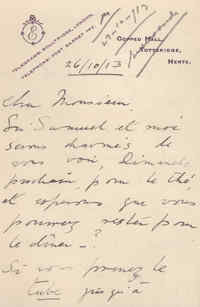 TELEGRAMS: SOUTHGATE, LONDON.
TELEPHONE: POST BARNET 147.
E
27-10-13
COPPED HALL,
TOTTERIDGE,
HERTS.
26/10/13
Cher Monsieur
Sir Samuel et moi
serons charmés de
vous voir, Dimanche
prochain, pour le thé,
et espérons que vous
pourrez rester pour
le dîner — ?
Si vous prenez le
tube jusqu'à